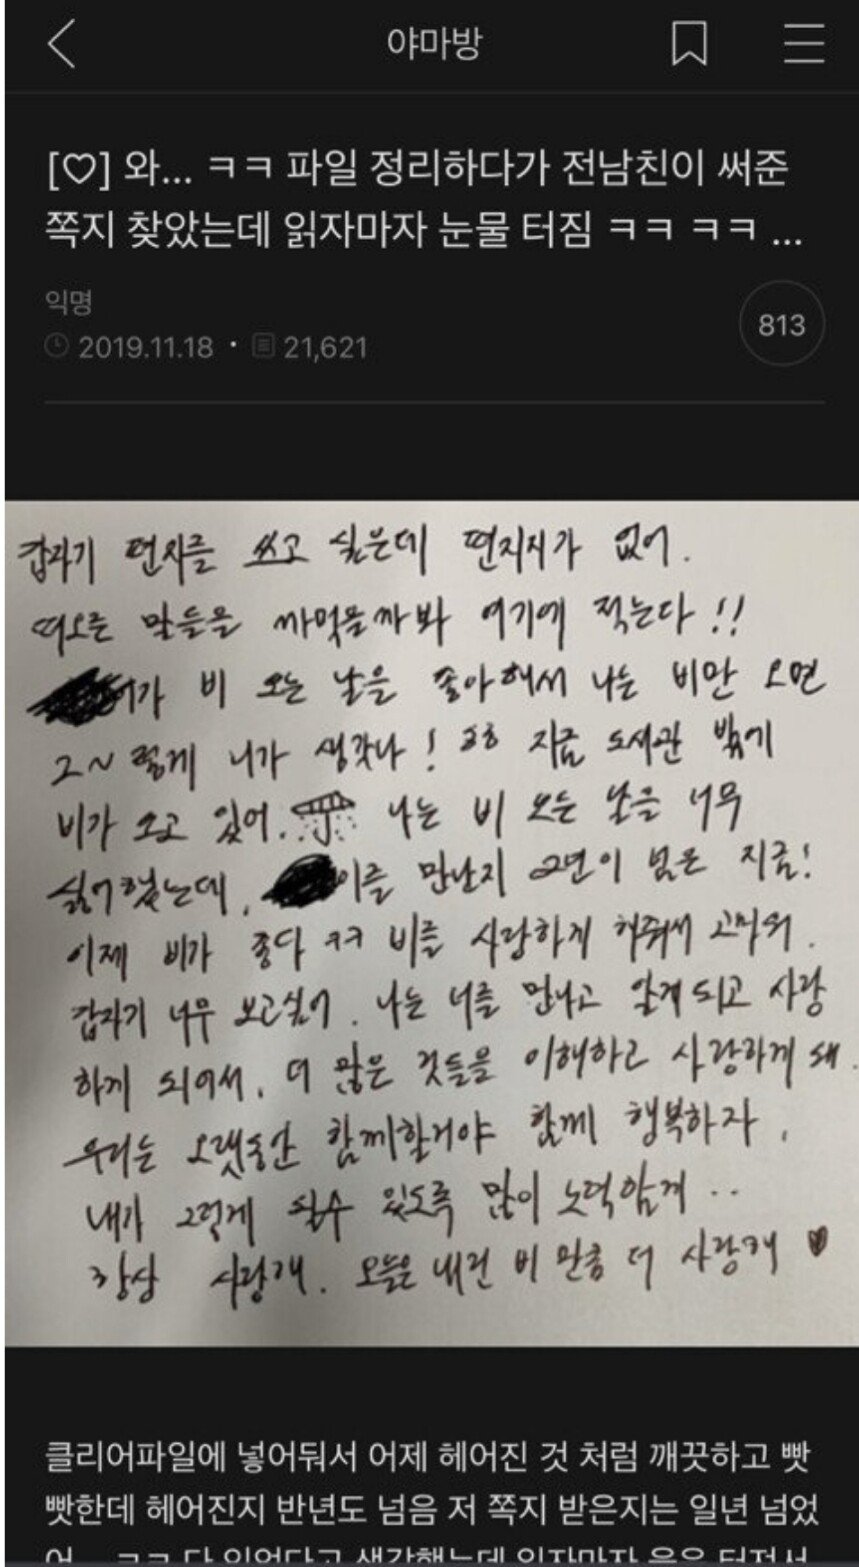 야마방
[♡] 와... ㅋㅋ 파일 정리하다가 전남친이 써준
쪽지 찾았는데 읽자마자 눈물 터짐 ㅋㅋ ㅋㅋ ...
익명
813
2019.11.18 · 21,621
갑자기 편지를 쓰고 싶은데 편지지가 없어.
떠오른 말들을 까먹을까봐 여기에 적는다!!
가 비 오는 날을 좋아해서 나는 비만 오면
그~ 렇게 니가 생각나! 지금 도서관 밖에
비가 오고 있어. 나는 비 오는 날을 너무
싫어했는데, 이를 만난지 2년이 넘은 지금!
이제 비가 좋다 ㅋㅋ 비를 사랑하게 해줘서 고마워.
갑자기 너무 보고싶어. 나는 너를 만나고 알게 되고 사랑
하게 되어서, 더 많은 것들을 이해하고 사랑하게 돼.
우리는 오랫동안 함께할거야 함께 행복하자.
내가 그렇게 될수 있도록 많이 노력할게..
항상 사랑해. 오늘은 내린 비 만큼 더 사랑해 ♥
클리어파일에 넣어둬서 어제 헤어진 것 처럼 깨끗하고 빳
빳한데 헤어진지 반년도 넘음 저 쪽지 받은지는 일년 넘었
어... ㅋㅋ 다 잊었다고 생각했는데 읽자마자 울음 터져서